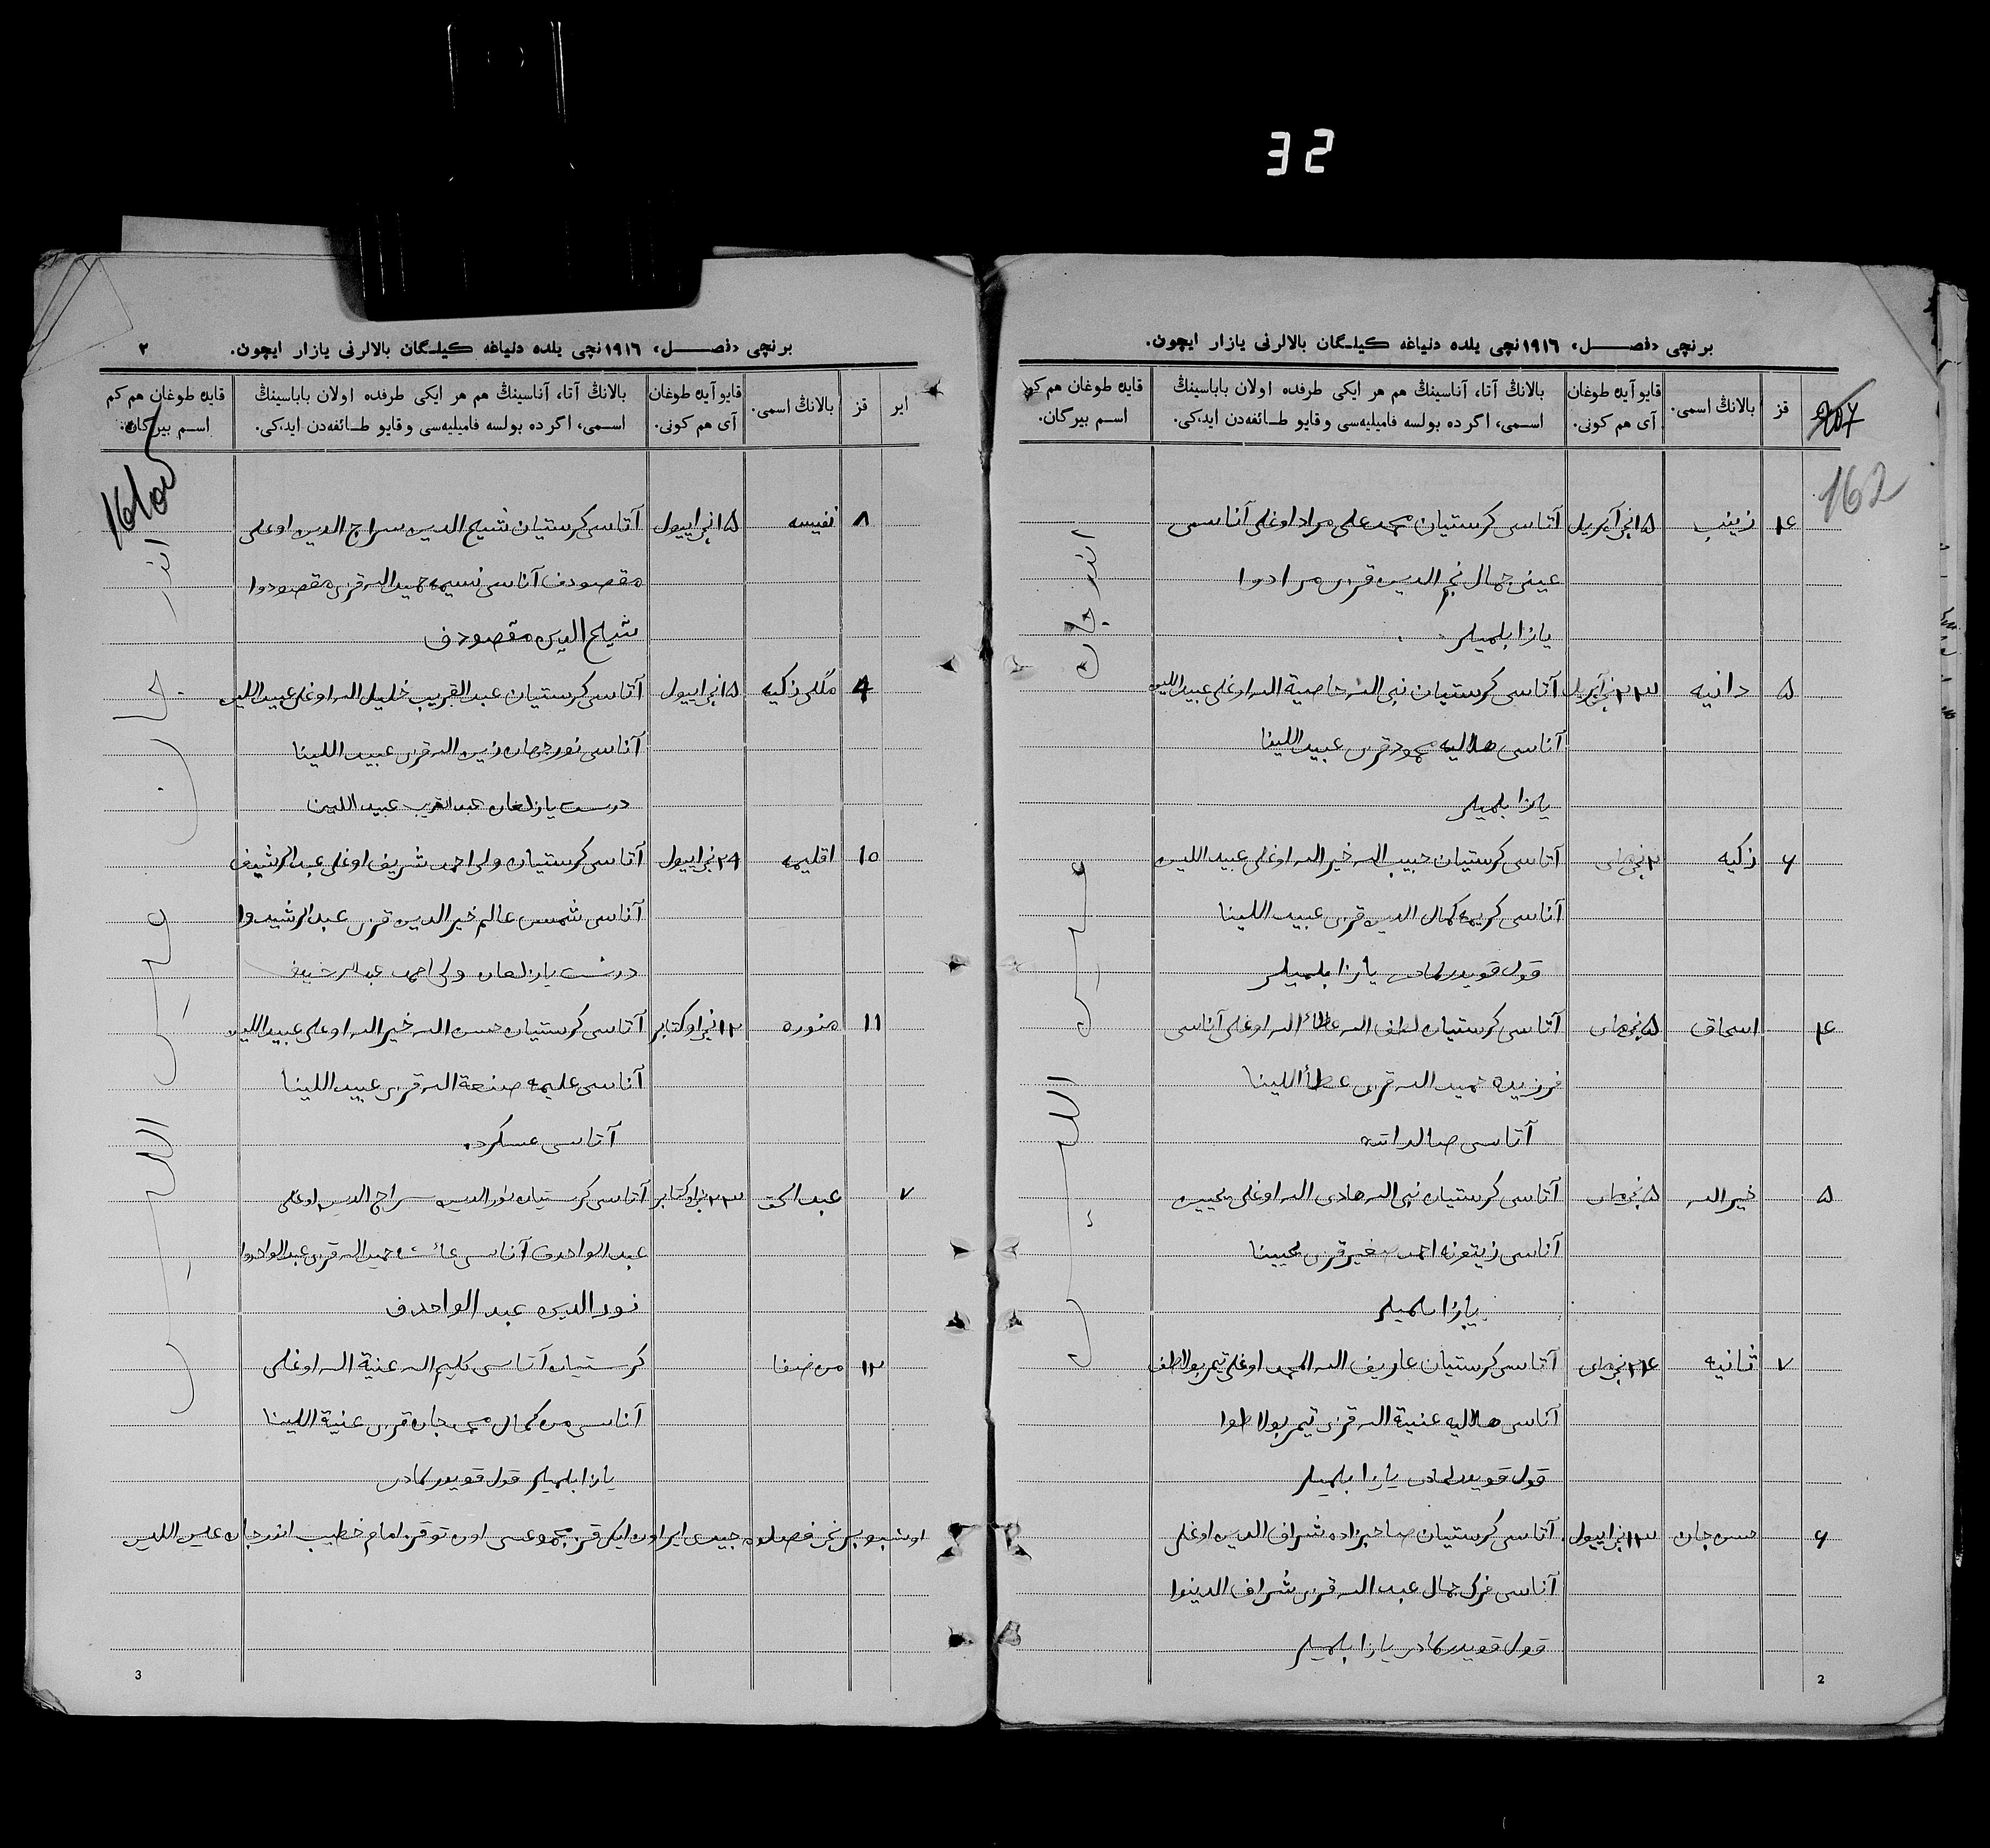 32
برنچی «فصل» ١٩١٦نچی یلده دنیاغه کیلگان بالالرنی یازار ایچون.
قز
بالانڭ اسمی.
قایو آیده طوغان آی هم کونی.
بالانڭ آتا، آناسینڭ هم هر ایکی طرفده اولان باباسینڭ اسمی، اگرده بولسه فامیلیه‌سی و قایو طائفه‌دن ایدکی.
قایده طوغان هم کم اسم بیرگان.
162
۴ زینب ۱۵نچی آپریل آتاسی کرستیان محمدعلی مراد اوغلی آناسی
عینی جمال نجم الدین قزی مرادوا
یازا بلمیلر
۵ دانیه ۲۳نچی آپریل آتاسی کرستیان نبی الله اوغلی عبیداللین
آناسی هلالیه محمود قزی عبیداللینا
یازا بلمیلر
۶ زکیه ۲نچی مای آتاسی کرستیان حبیب الله خیرالله اوغلی عبیداللین
آناسی کریمه کمال الدین قزی عبیداللینا
قول قویدرلمادی یازا بلمیلر
۴ اسحاق ۵نچی مای آتاسی کرستیان لطف الله عطاءالله اوغلی آناسی
فرزیده حمیدالله قزی عطااللینا
آتاسی صالداتده
۵ خیرالله ۵نچی مای آتاسی کرستیان نبی الله هادی الله اوغلی یحیین
آناسی زیتونه احمدصغیر قزی یحیینا
یازا بلمیلر
۷ ثانیه ۲۴نچی مای آتاسی کرستیان عاریف الله اوغلی تیمربولاطف
آناسی هلالیه عنیة الله قزی تیمربولاطوا
قول قویدرلمادی یازا بلمیلر
۶ حسن جان ۱۳نچی اییول آتاسی کرستیان صاحبزاده شراف الدین اوغلی
آناسی جمال عبدالله قزی شراف الدینوا
قول قویدرلمادی یازا بلمیلر
2
برنچی «فصل» ١٩١٦نچی یلده دنیاغه کیلگان بالالرنی یازار ایچون. ٢
ایر
قز
بالانڭ اسمی.
قایو آیده طوغان آی هم کونی.
بالانڭ آتا، آناسینڭ هم هر ایکی طرفده اولان باباسینڭ اسمی، اگرده بولسه فامیلیه‌سی و قایو طائفه‌دن ایدکی.
قایده طوغان هم کم اسم بیرگان.
۸ نفیسه ۱۵نچی اییول آتاسی کرستیان شیخ الدین سراج الدین اوغلی
مقصودف آناسی نسیمه حمیدالله قزی مقصودوا
شیخ الدین مقصودف
۹ زکیه ۱۵نچی اییول آتاسی کرستیان عبدالقریب خلیل الله اوغلی عبیداللین
آناسی نورجهان زین الله قزی عبیداللینا
درست یازلغان عبدالقریب عبیداللین
۱۰ اقلیمه ۲۹نچی اییول آتاسی کرستیان ولی احمد شریف اوغلی عبدالرشیف
آناسی شمس عالم خیرالدین قزی عبدالرشیدوا
درست یازلغان ولی احمد عبدالرشیف
۱۱ منوره ۱۲نچی اوکتابر آتاسی کرستیان حسن الله خیرالله اوغلی عبیداللین
آناسی علیمه صنعة الله قزی عبیداللینا
آتاسی عسکرده
۷ عبدالحق ۲۳نچی اوکتابر آتاسی کرستیان نورالدین سراج الدین اوغلی
عبدالواحدف آناسی عائشه حمیدالله قزی عبدالواحدوا
نورالدین عبدالواحدف
۱۲ من صفا کرستیان آتاسی کلیم الله عنیة الله اوغلی
آناسی من کمال محمدجان قزی عنیة اللینا
یازا بلمیلر قول قویدرلمادی
اوشبو برنچی فصلده جییدی ایر اون ایکی قز مجموعسی اون توقز امام خطیب انذرجان
3